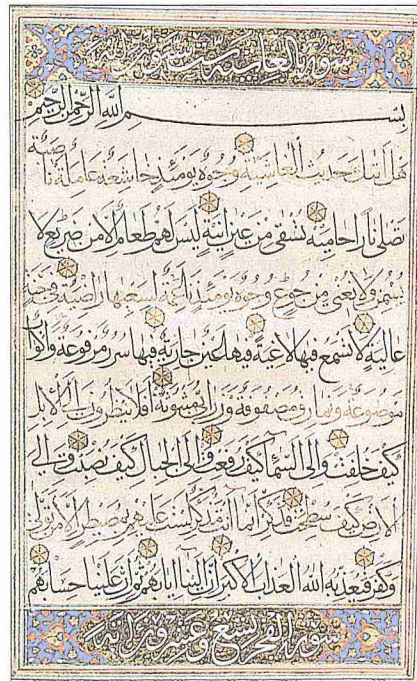 سورة الغاشية ست وعشرون اية
بِسْمِ اللهِ الرَّحْمٰنِ الرَّحِيمِ
هَلْ اَتٰيكَ حَدِيثُ الْغَاشِيَةِ وُجُوهٌ يَوْمَئِذٍ خَاشِعَةٌ عَامِلَةٌ نَاصِبَةٌ
تَصْلٰى نَارًا حَامِيَةً تُسْقٰى مِنْ عَيْنٍ اٰنِيَةٍ لَيْسَ لَهُمْ طَعَامٌ اِلَّا مِنْ ضَرِيعٍ لَا
يُسْمِنُ وَلَا يُغْنِى مِنْ جُوعٍ وُجُوهٌ يَوْمَئِذٍ نَاعِمَةٌ لِسَعْيِهَا رَاضِيَةٌ فِى جَنَّةٍ
عَالِيَةٍ لَا تَسْمَعُ فِيهَا لَاغِيَةً فِيهَا عَيْنٌ جَارِيَةٌ فِيهَا سُرُرٌ مَرْفُوعَةٌ وَاَكْوَابٌ
مَوْضُوعَةٌ وَنَمَارِقُ مَصْفُوفَةٌ وَزَرَابِىُّ مَبْثُوثَةٌ اَفَلَا يَنْظُرُونَ اِلَى الْاِبِلِ
كَيْفَ خُلِقَتْ وَاِلَى السَّمَاءِ كَيْفَ رُفِعَتْ وَاِلَى الْجِبَالِ كَيْفَ نُصِبَتْ وَاِلَى
الْاَرْضِ كَيْفَ سُطِحَتْ فَذَكِّرْ اِنَّمَا اَنْتَ مُذَكِّرٌ لَسْتَ عَلَيْهِمْ بِمُصَيْطِرٍ اِلَّا مَنْ تَوَلّٰى
وَكَفَرَ فَيُعَذِّبُهُ اللهُ الْعَذَابَ الْاَكْبَرَ اِنَّ اِلَيْنَا اِيَابَهُمْ ثُمَّ اِنَّ عَلَيْنَا حِسَابَهُمْ
سورة الفجر تسع وعشرون اية